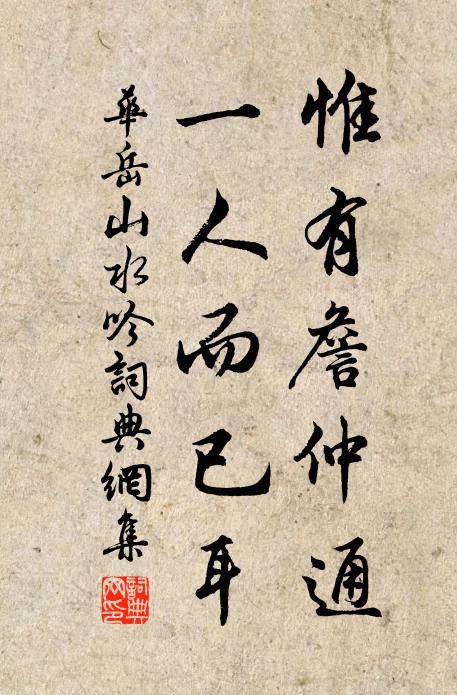 惟有詹仲通
一人而已耳
華岳山水吟詞典網集
詞典網印